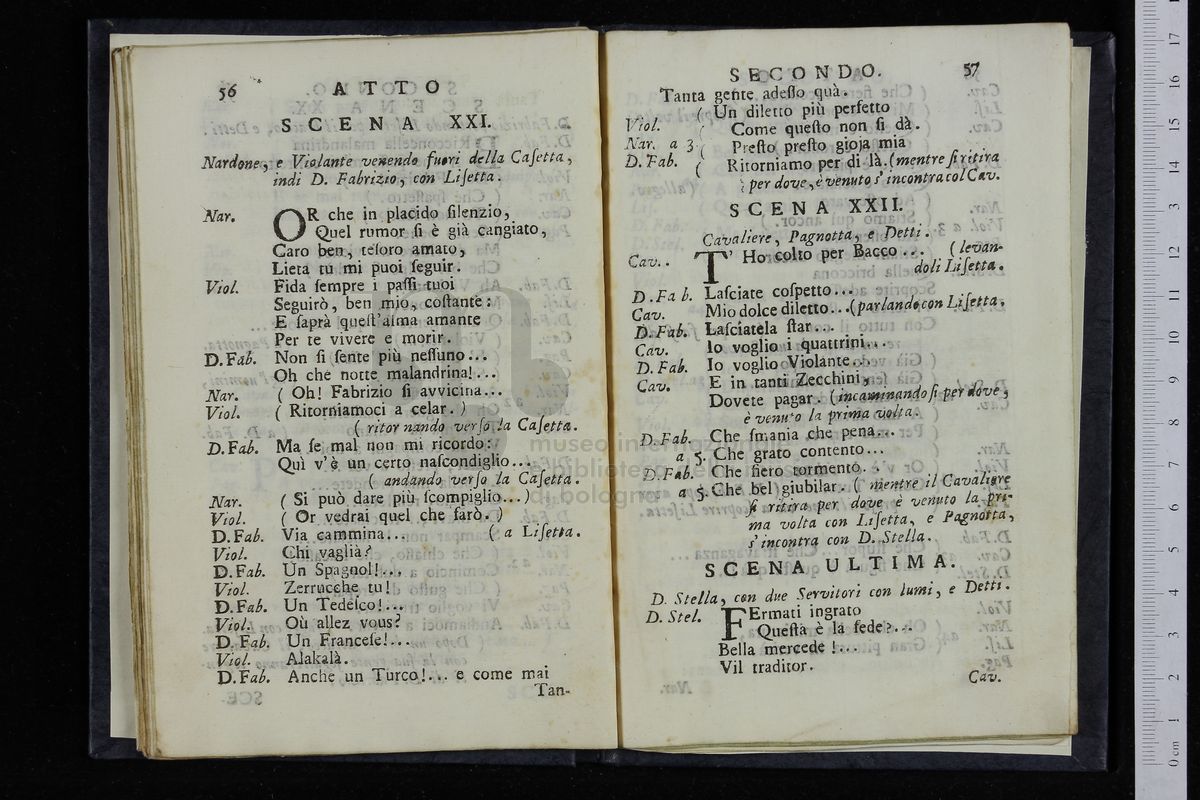 56 ATTO
SCENA XXI.
Nardone, e Violante venendo fuori della Caſetta,
indi D. Fabrizio, con Liſetta.
Nar. OR che in placido ſilenzio,
Quel rumor ſi è già cangiato,
Caro ben, teſoro amato,
Lieta tu mi puoi ſeguir.
Viol. Fida ſempre i paſſi tuoi
Seguirò, ben mio, coſtante:
E ſaprà queſt'alma amante
Per te vivere e morir.
D. Fab. Non ſi ſente più neſſuno...
Oh che notte malandrina!...
Nar. ( Oh! Fabrizio ſi avvicina...
Viol. ( Ritorniamoci a celar. )
( ritornando verſo la Caſetta.
D. Fab. Ma ſe mal non mi ricordo:
Quì v'è un certo naſcondiglio...
( andando verſo la Caſetta.
Nar. ( Si può dare più ſcompiglio...)
Viol. ( Or vedrai quel che farò. )
D. Fab. Via cammina... ( a Liſetta.
Viol. Chi vaglià?
D. Fab. Un Spagnol!...
Viol. Zerrucche tu!
D. Fab. Un Tedeſco!...
Viol. Où allez vous?
D. Fab. Un Franceſe!...
Viol. Alakalà.
D. Fab. Anche un Turco!... e come mai
Tan-
SECONDO. 57
Tanta gente adeſſo quà.
( Un diletto più perfetto
Viol. ( Come queſto non ſi dà.
Nar. a 3 ( Preſto preſto gioja mia
D. Fab. ( Ritorniamo per di là. (mentre ſi ritira
per dove è venuto s'incontra col Cav.
SCENA XXII.
Cavaliere, Pagnotta, e Detti.
Cav. T'Ho colto per Bacco... (levan-
doli Liſetta.
D. Fab. Laſciate coſpetto...
Cav. Mio dolce diletto...(parlando con Liſetta.
D. Fab. Laſciatela ſtar...
Cav. Io voglio i quattrini...
D. Fab. Io voglio Violante...
Cav. E in tanti Zecchini,
Dovete pagar. (incamminandoſi per dove,
è venuto la prima volta.
D. Fab. Che ſmania che pena...
a 5. Che grato contento...
D. Fab. Che fiero tormento...
a 5. Che bel giubilar. ( mentre il Cavaliere
ſi ritira per dove è venuto la pri-
ma volta con Liſetta, e Pagnotta,
s'incontra con D. Stella.
SCENA ULTIMA.
D. Stella, con due Servitori con lumi, e Detti.
D. Stel. FErmati ingrato
Queſta è la fede?...
Bella mercede!...
Vil traditor.
Cav.
museo internazionale
e biblioteca della
di bologna